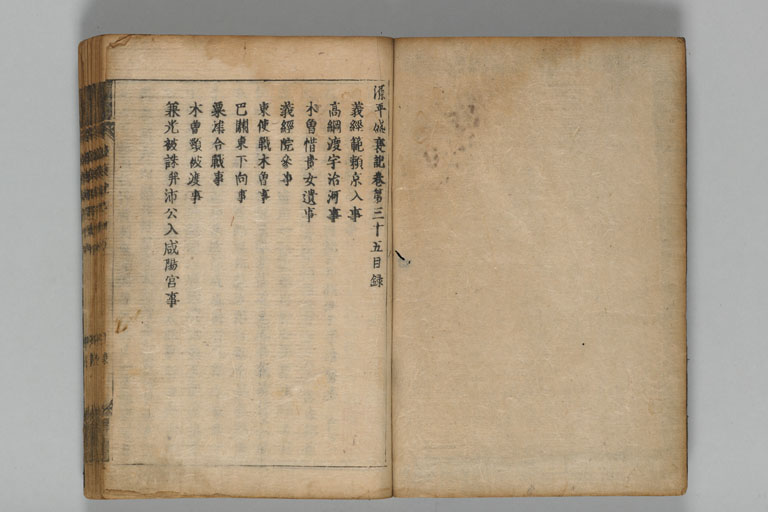 源平盛衰記巻第三十五目録
義經範頼京入事
高綱渡宇治河事
木曽惜貴女遺事
義經院参事
東使戰木曽事
巴關東下向事
粟津合戰事
木曽頸被渡事
兼光被誅弁沛公入咸陽宮事